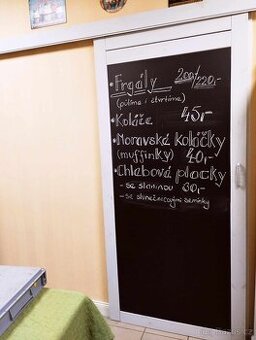 • Frgály 200/220,-
(půlíme i čtvrtíme)
• Koláče 45,-
• Moravské koláčky
(muffinky) 40,-
• Chlebové placky
- se slaninou 60,-
- se slunečnicovými semínky